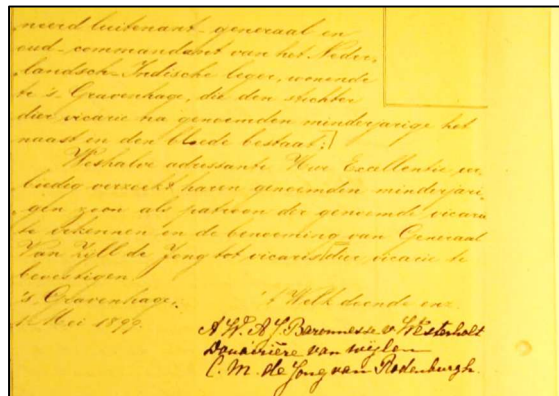 neerd luitenant-generaal en
oud-commandant van het Neder-
landsch-Indische leger, wonende
te 's Gravenhage, die den stichter
dier vicarie na genoemden minderjarige het
naast in den bloede bestaat.
Weshalve adressante Uwe Excellentie eer-
biedig verzoekt haren genoemden minderjari-
gen zoon als patroon der genoemde vicarie
te erkennen en de benoeming van Generaal
Van Zijll de Jong tot vicaris dier vicarie te
bevestigen
's Gravenhage, 't Welk doende enz.
1 Mei 1899.
A. W. A. J. Baronnesse v. Westerholt
Douairière van wijlen
C. M. de Jong van Rodenburgh.